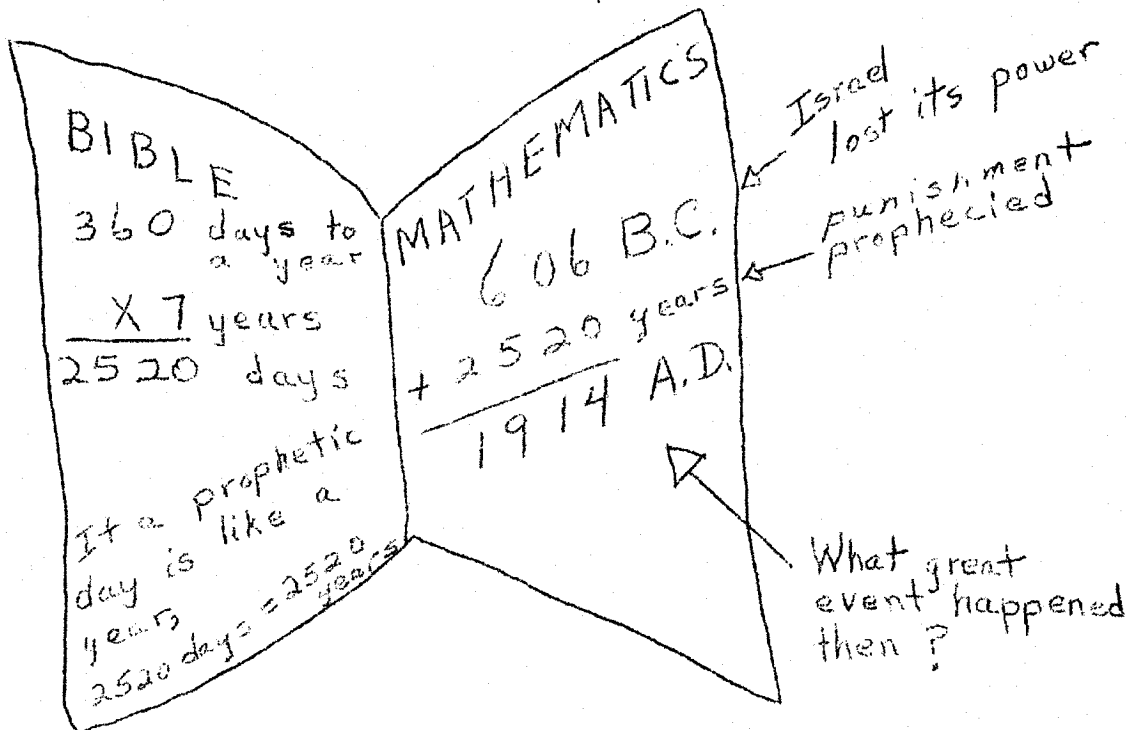 BIBLE
360 days to
a year
X 7 years
2520 days
If a prophetic
day is like a
year,
2520 days = 2520
years
MATHEMATICS
606 B.C.
+ 2520 years
1914 A.D.
Israel
lost its power
punishment
prophecied
What great
event happened
then?